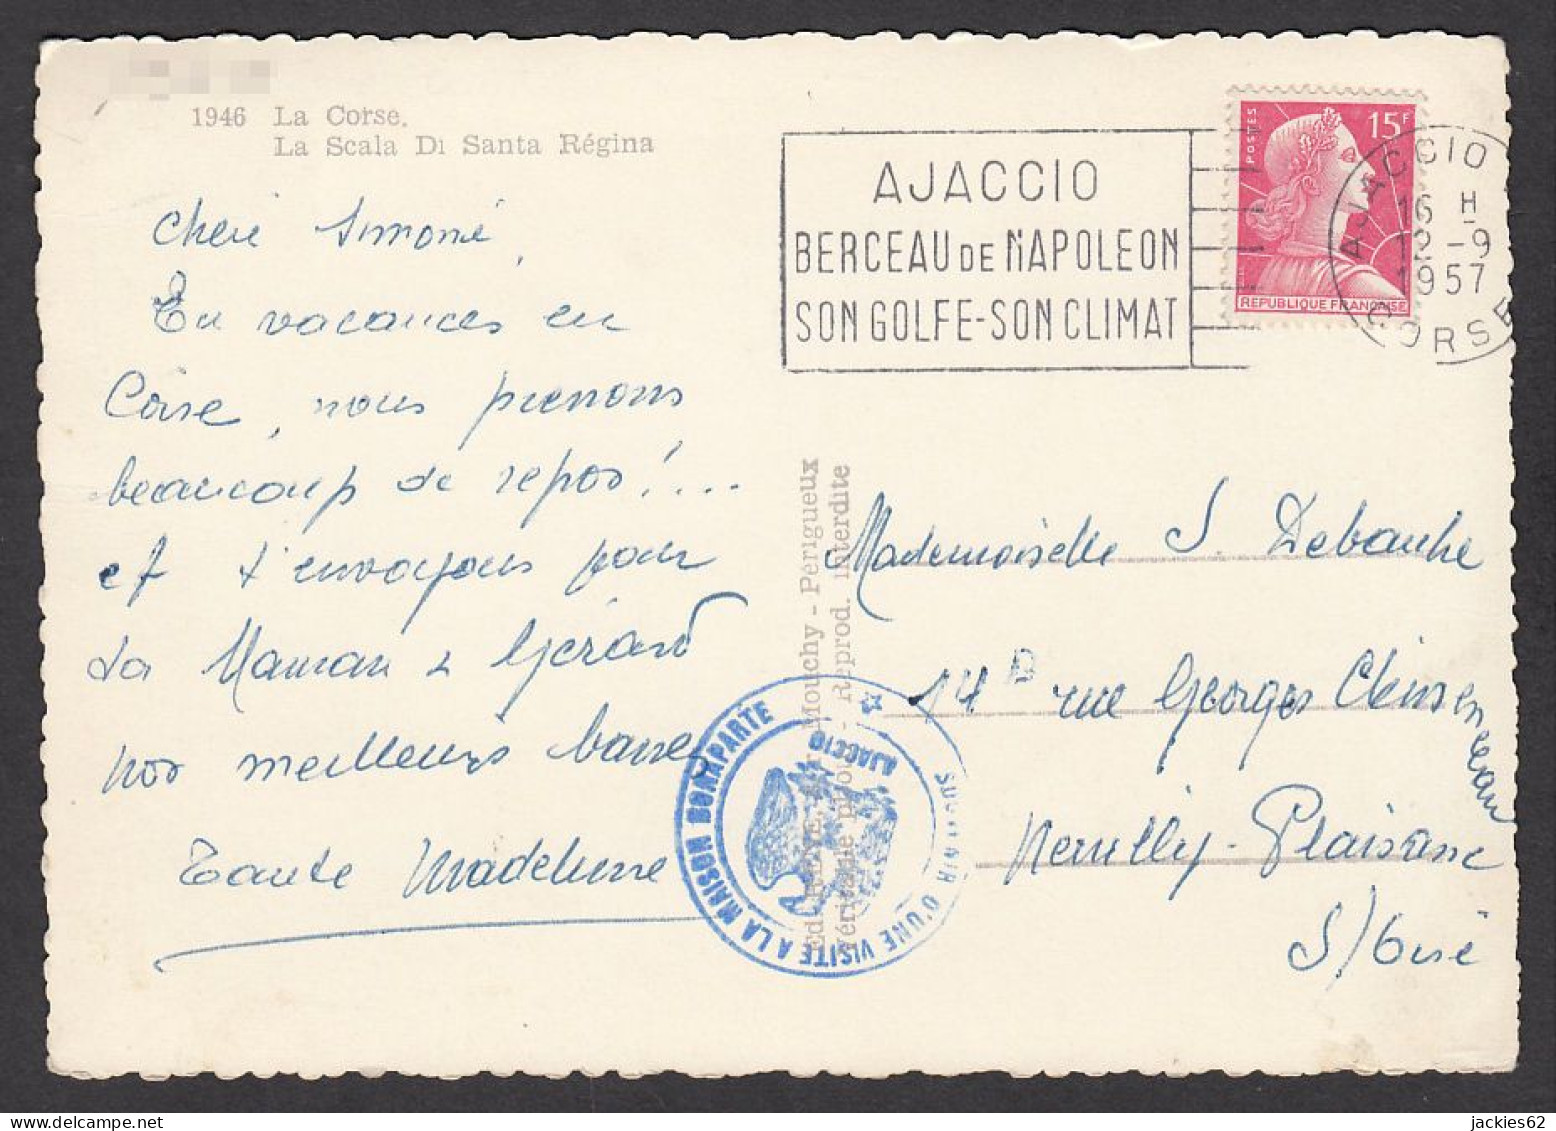 1946 La Corse.
La Scala Di Santa Régina
Cheie Simone,
En vacances en
Corse, nous prenons
beaucoup de repos !...
et t'envoyons pour
ta Maman & Gérard
nos meilleurs baisers
Tante Madeleine
AJACCIO
BERCEAU DE NAPOLEON
SON GOLFE-SON CLIMAT
POSTES
15F
REPUBLIQUE FRANÇAISE
AJACCIO
16 H
12-9
1957
CORSE
Mouchy - Périgueux
Reprod. interdite
SOUVENIR D'UNE VISITE A LA MAISON BONAPARTE
AJACCIO
Mademoiselle S. Debauke
14 B rue Georges Clemenceau
Neuilly-Plaisance
S/Oise
jackies62